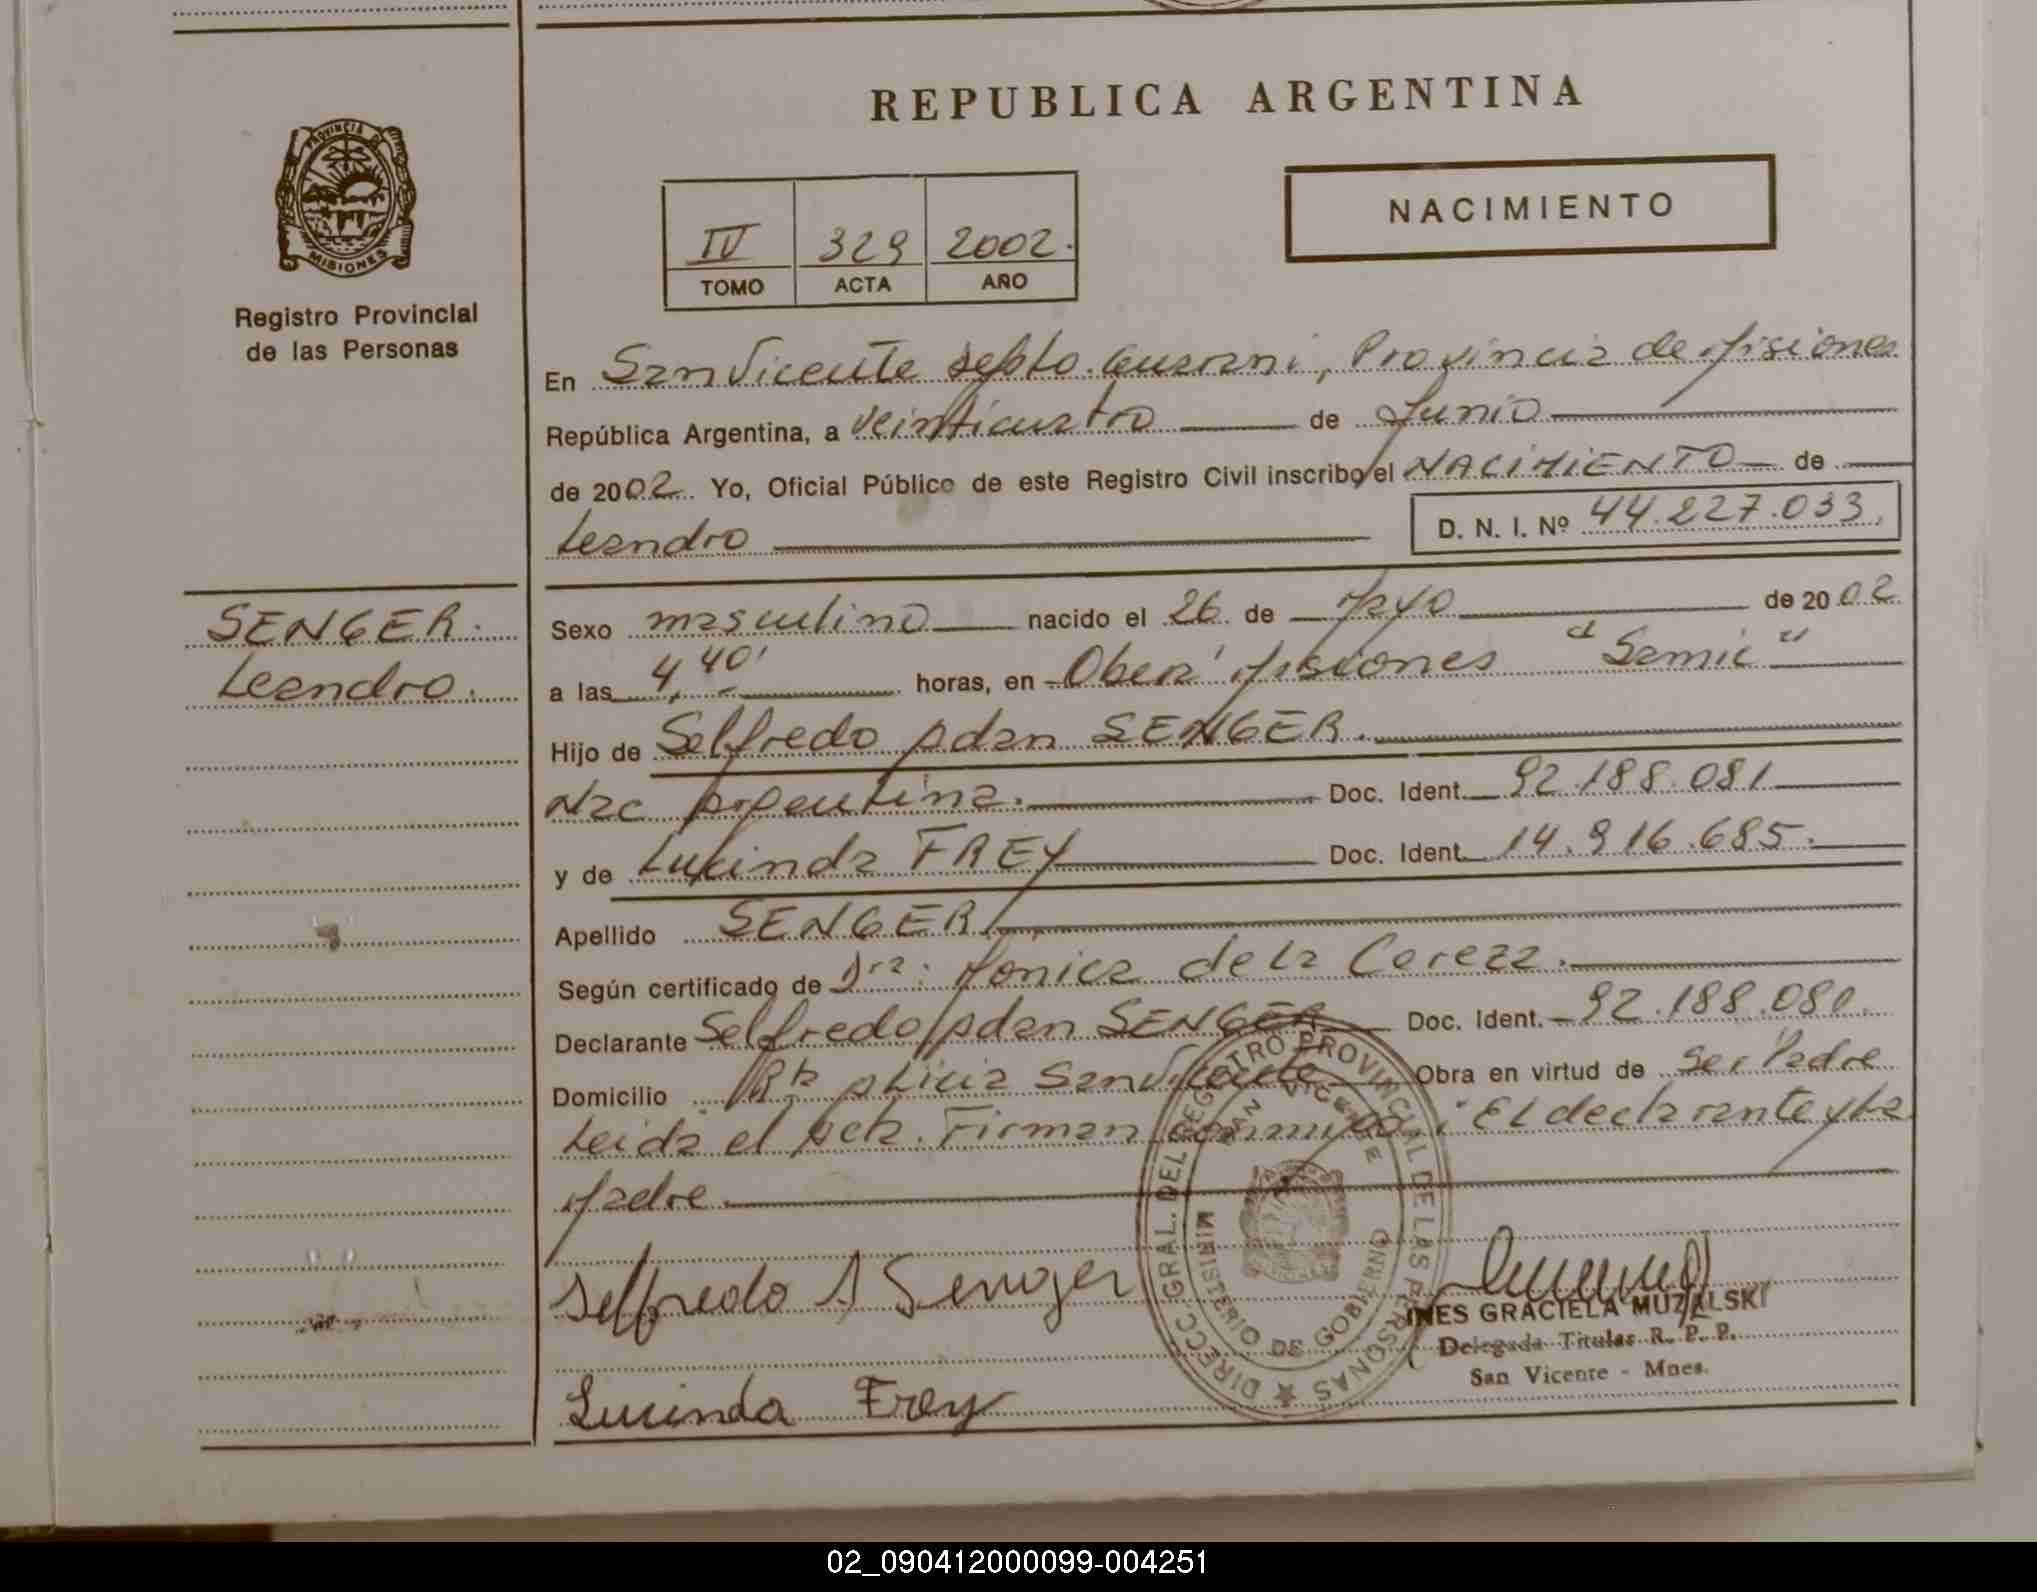 REPUBLICA ARGENTINA
PROVINCIA DE
MISIONES
Registro Provincial
de las Personas
IV 329 2002.
TOMO ACTA AÑO
NACIMIENTO
En San Vicente Depto. Guarani, Provincia de Misiones
República Argentina, a veinticuatro de Junio
de 2002. Yo, Oficial Público de este Registro Civil inscribo el NACIMIENTO de
Leandro
D. N. I. Nº 44.227.033.
SENGER.
Leandro.
Sexo masculino nacido el 26 de Mayo de 2002
a las 4,40' horas, en Obera' Misiones "Samic"
Hijo de Selfredo Adan SENGER.
Nac Argentina. Doc. Ident. 92.188.081
y de Lucinda FREY Doc. Ident. 14.916.685.
Apellido SENGER
Según certificado de Dra. Monica de la Cereza.
Declarante Selfredo Adan SENGER Doc. Ident. 92.188.081.
Domicilio Alicia San Vicente Obra en virtud de Ser Padre
Leida el Acta. Firman conmigo: El declarante y la
Madre
DIRECC. GRAL. DEL REGISTRO PROVINCIAL DE LAS PERSONAS
SAN VICENTE
MINISTERIO DE GOBIERNO
Selfredo A Senger
INES GRACIELA MUZALSKI
Delegada Titular R. P. P.
San Vicente - Mnes.
Lucinda Frey
02_090412000099-004251